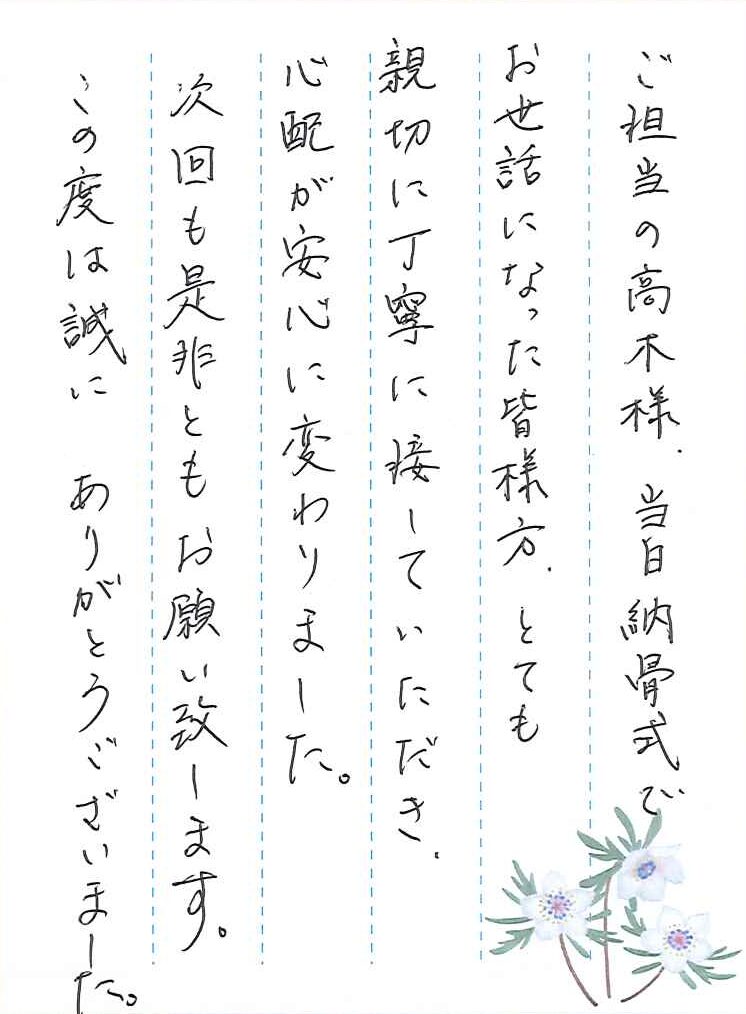 ご担当の高木様、当日納骨式で
お世話になった皆様方、とても
親切に丁寧に接していただき、
心配が安心に変わりました。
次回も是非ともお願い致します。
この度は誠に ありがとうございました。